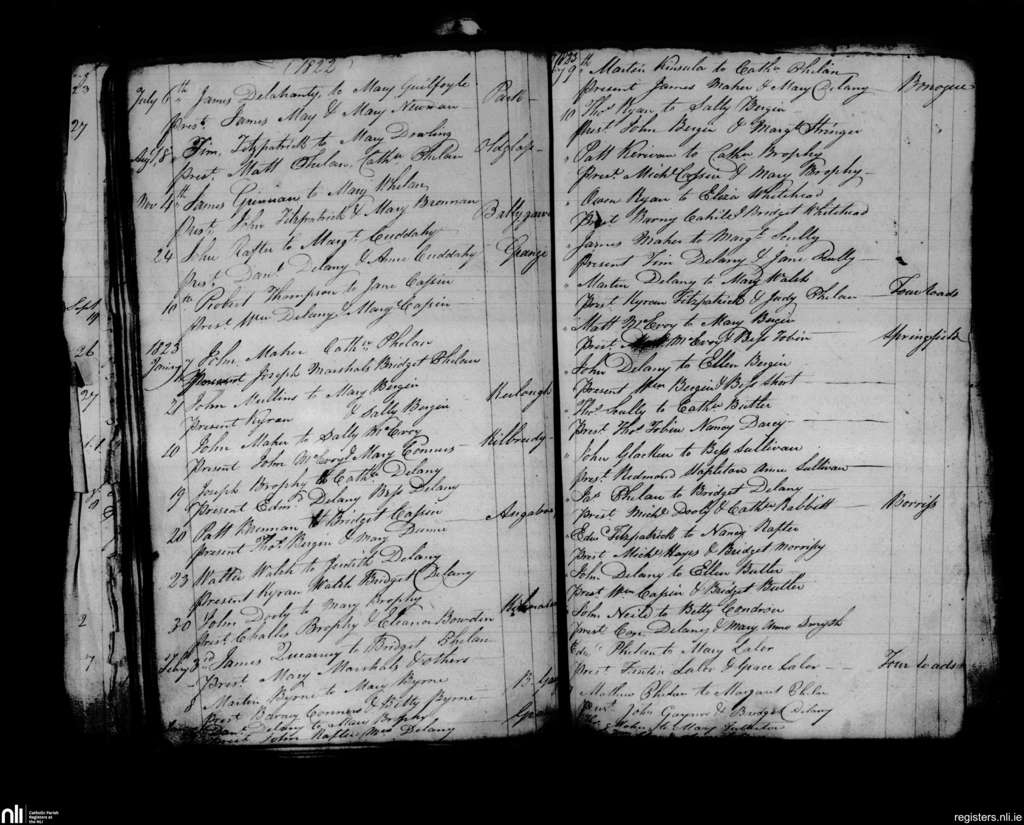 (1822)
July 6th James Delahanty to Mary Guilfoyle Park
Prest. James May & Mary Newman
Augt. 8 Tim. Fitzpatrick to Mary Dowling
Prest Matt Phelan, Cathn Phelan
Nov 4th James Grinnan to Mary Whelan
Prest. John Fitzpatrick & Mary Brennan
24 John Rafter to Margt. Cuddahy Grange
Prest. Danl Delany & Anne Cuddahy
10th Robert Thompson to Jane Capein
Prest Wm Delany & Mary Capein
1823
John Maher Cathn Phelan
Present Joseph Marshal Bridget Phelan
21 John Mullins to Mary Bergin
Present Kyran & Sally Bergin
10 John Maher to Sally McEvoy
Present John McEvoy & Mary Conners
19 Joseph Brophy to Cathn Delany
Present Edmd Delany Bess Delany
20 Patt Brennan to Bridget Capein
Present Thos Bergin & Mary Dunne
23 Watter Walsh to Judith Delany
Present Kyran Walsh Bridget Delany
30 John Dooly to Mary Brophy
Prest Charles Brophy & Eleanor Bowden
3rd James Quearney to Bridget Phelan
Prest Mary Marshal & others
8 Martin Byrne to Mary Byrne
Prest Barney Conners & Betty Byrne
Danl Delany to Mary Brophy
Prest John Rafter Delany
23
27
26
27
2
7
9th Martin Kinsela to Cathn Phelan
Present James Maher & Mary Delany
10 Thos Ryan to Sally Bergin
Prest John Bergin & Margt Stringer
Patt Kerwan to Cathn Brophy
Prest Michl Capein & Mary Brophy
Owen Ryan to Eliza Whitehead
Prest Barny Cahill & Bridget Whitehead
James Maher to Margt. Scully
Present Tim Delany & Jane Scully
Martin Delany to Mary Walsh
Prest Kyran Fitzpatrick & Judy Phelan Fourroads
Matt McEvoy to Mary Bergin
Prest McEvoy & Bess Tobin Springfield
John Delany to Ellen Bergin
Present Wm Bergin & Bess Short
Thos Scally to Cathn Butler
Prest Thos Tobin Nancy Darcy
John Glacken to Bess Sullivan
Prest. Redmond Stapletan Anne Sullivan
Jas Phelan to Bridget Delany
Prest Michl Dooly & Cathn Rabbitt Borriss
Edwd Fitzpatrick to Nancy Rafter
Prest Michl Hayes & Bridget Morrissy
John Delany to Ellen Butler
Prest Wm Capein & Bridget Butler
John Neild to Betty Condron
Prest Con Delany & Mary Anne Smyth
Edwd Phelan to Mary Lalor
Prest Fintin Lalor & Grace Lalor Four roads
Mathew Phelan to Margaret Phelan
Prest John Gaynor & Bridget Delany
nli
Catholic Parish
Registers at
the NLI
registers.nli.ie